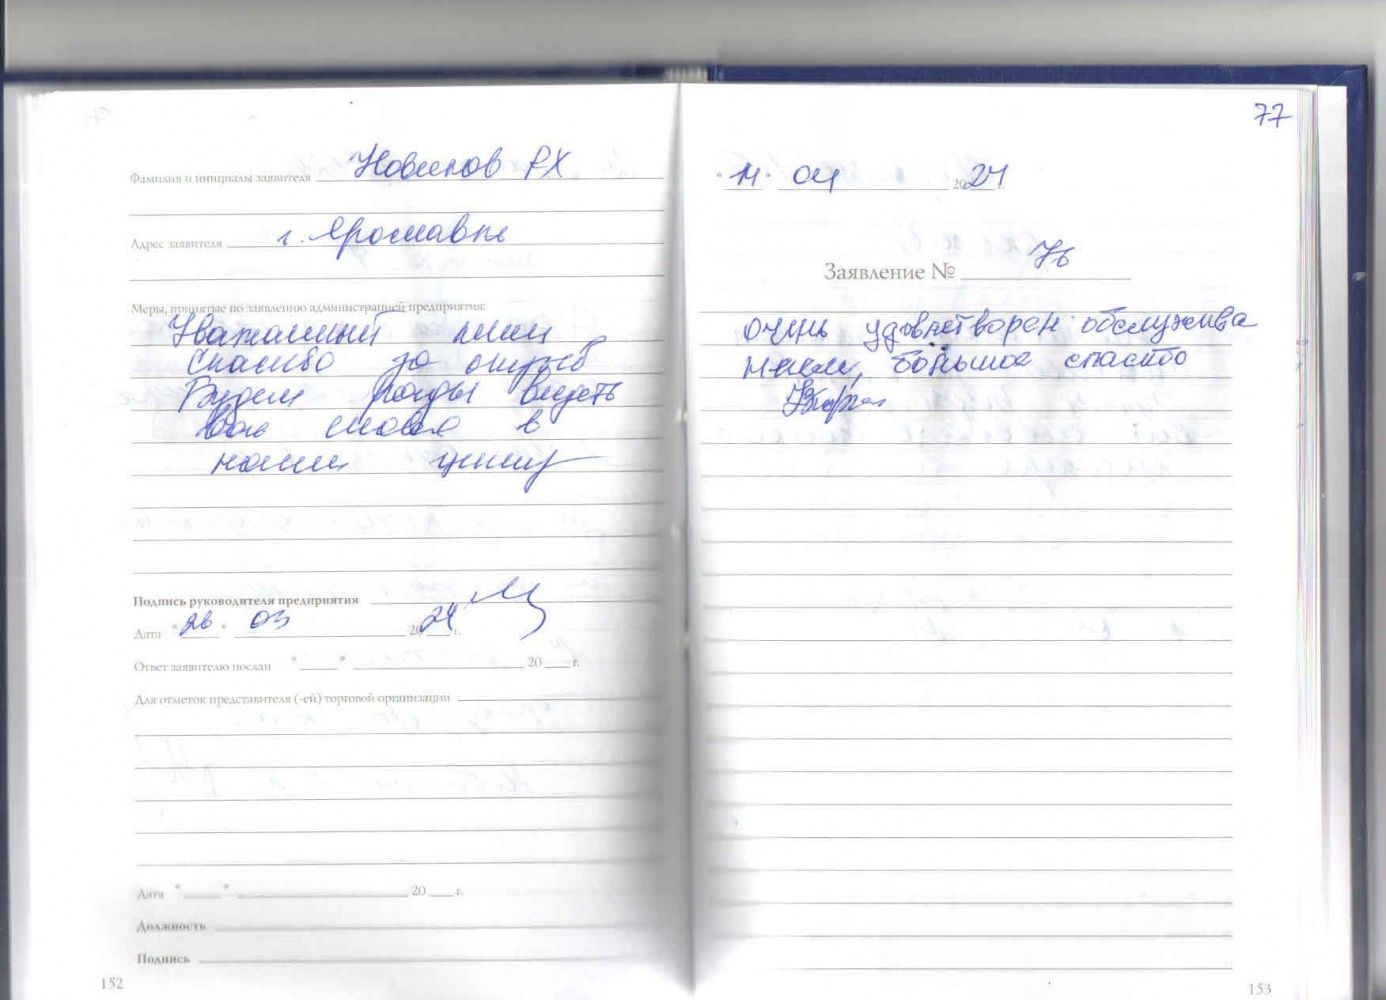 Фамилия и инициалы заявителя Новиков РХ
Адрес заявителя г. Ярославль
Меры, принятые по заявлению администрацией предприятия:
Уважаемый
Спасибо за отзыв
Будем рады видеть
Вас снова в
нашем центре
Подпись руководителя предприятия
Дата "26" 03 2024 г.
Ответ заявителю послан "___" 20 г.
Для отметок представителя (-ей) торговой организации
Дата " " 20 г.
Должность
Подпись
152
77
04 2024
Заявление № 76
очень удовлетворен обслужива
нием, большое спасибо
153